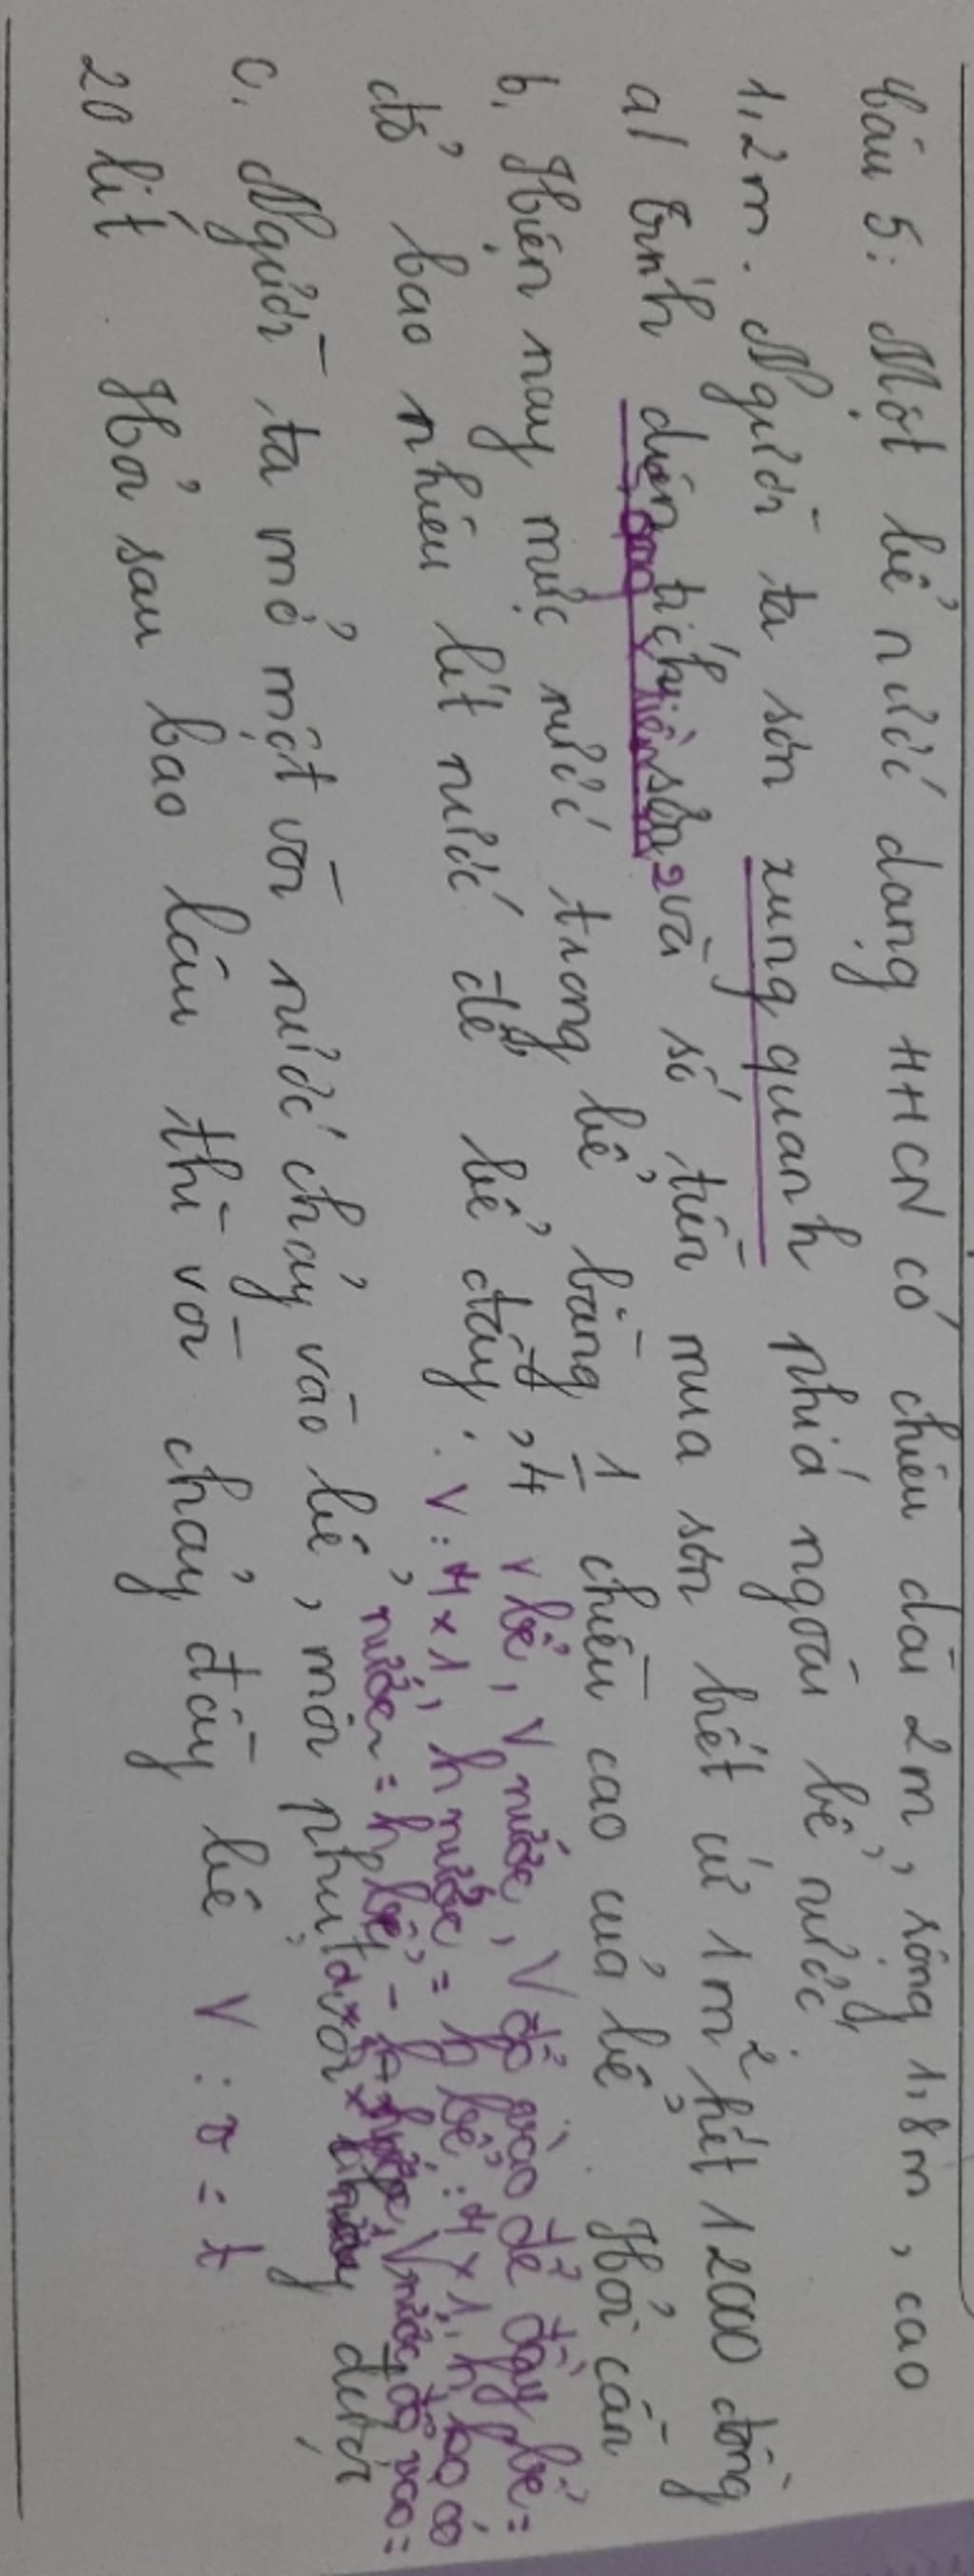 Câu 5: Một bể nước dạng HHCN có chiều dài 2m, rộng 1,8m, cao
1,2m. Người ta sơn xung quanh phía ngoài bể nước.
a/ Tính diện tích sơn và số tiền mua sơn biết cứ 1m² hết 12000 đồng
b. Hiện nay mực nước trong bể bằng 1/4 chiều cao của bể. Hỏi cần
V bể, V nước, V đổ vào để đầy bể =
đổ bao nhiêu lít nước để bể đầy. V: 4 x 1, h nước = h bể : 4 x 1, h
nước = h bể - h nước, V nước đổ vào =
c. Người ta mở một vòi nước chảy vào bể, mỗi phút vòi chảy được
20 lít. Hỏi sau bao lâu thì vòi chảy đầy bể V : v = t